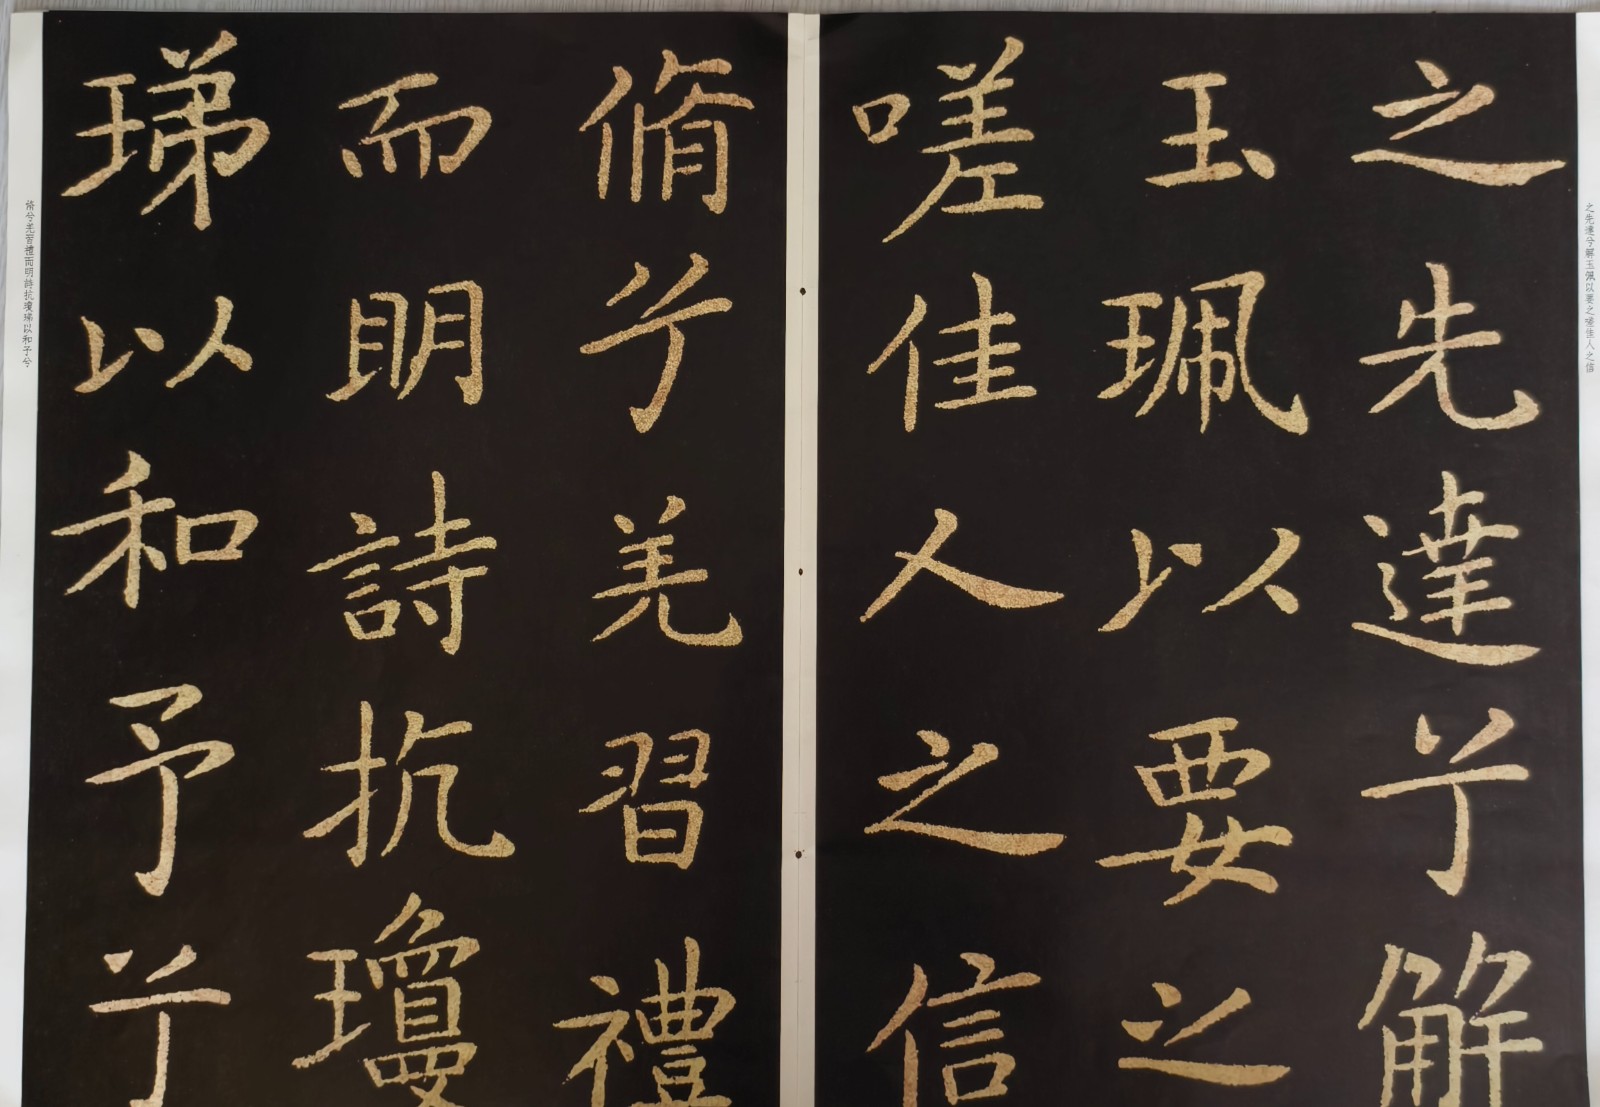 之先達兮解
玉珮以要之
嗟佳人之信
脩兮羌習禮
而明詩抗瓊
珶以和予兮
之先達兮解玉佩以要之嗟佳人之信
脩兮羌習禮而明詩抗瓊珶以和予兮